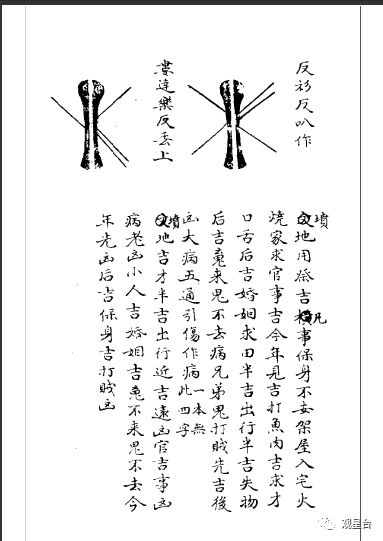 反衫反叭作
婁達樂反丢上
墳地用祭吉凡事保身不安架屋入宅火
燒家求官事吉今年見吉打魚肉吉求才
口舌后吉婚姻求田半吉出行半吉失物
后吉竜来鬼不去病兄弟鬼打賊先吉後
凶大病五通引傷作病一本無此四字
墳地吉才半吉出行近吉遠凶官吉事凶
病老凶小人吉婚姻吉竜不来鬼不去今
年先凶后吉保身吉打賊凶
观星台